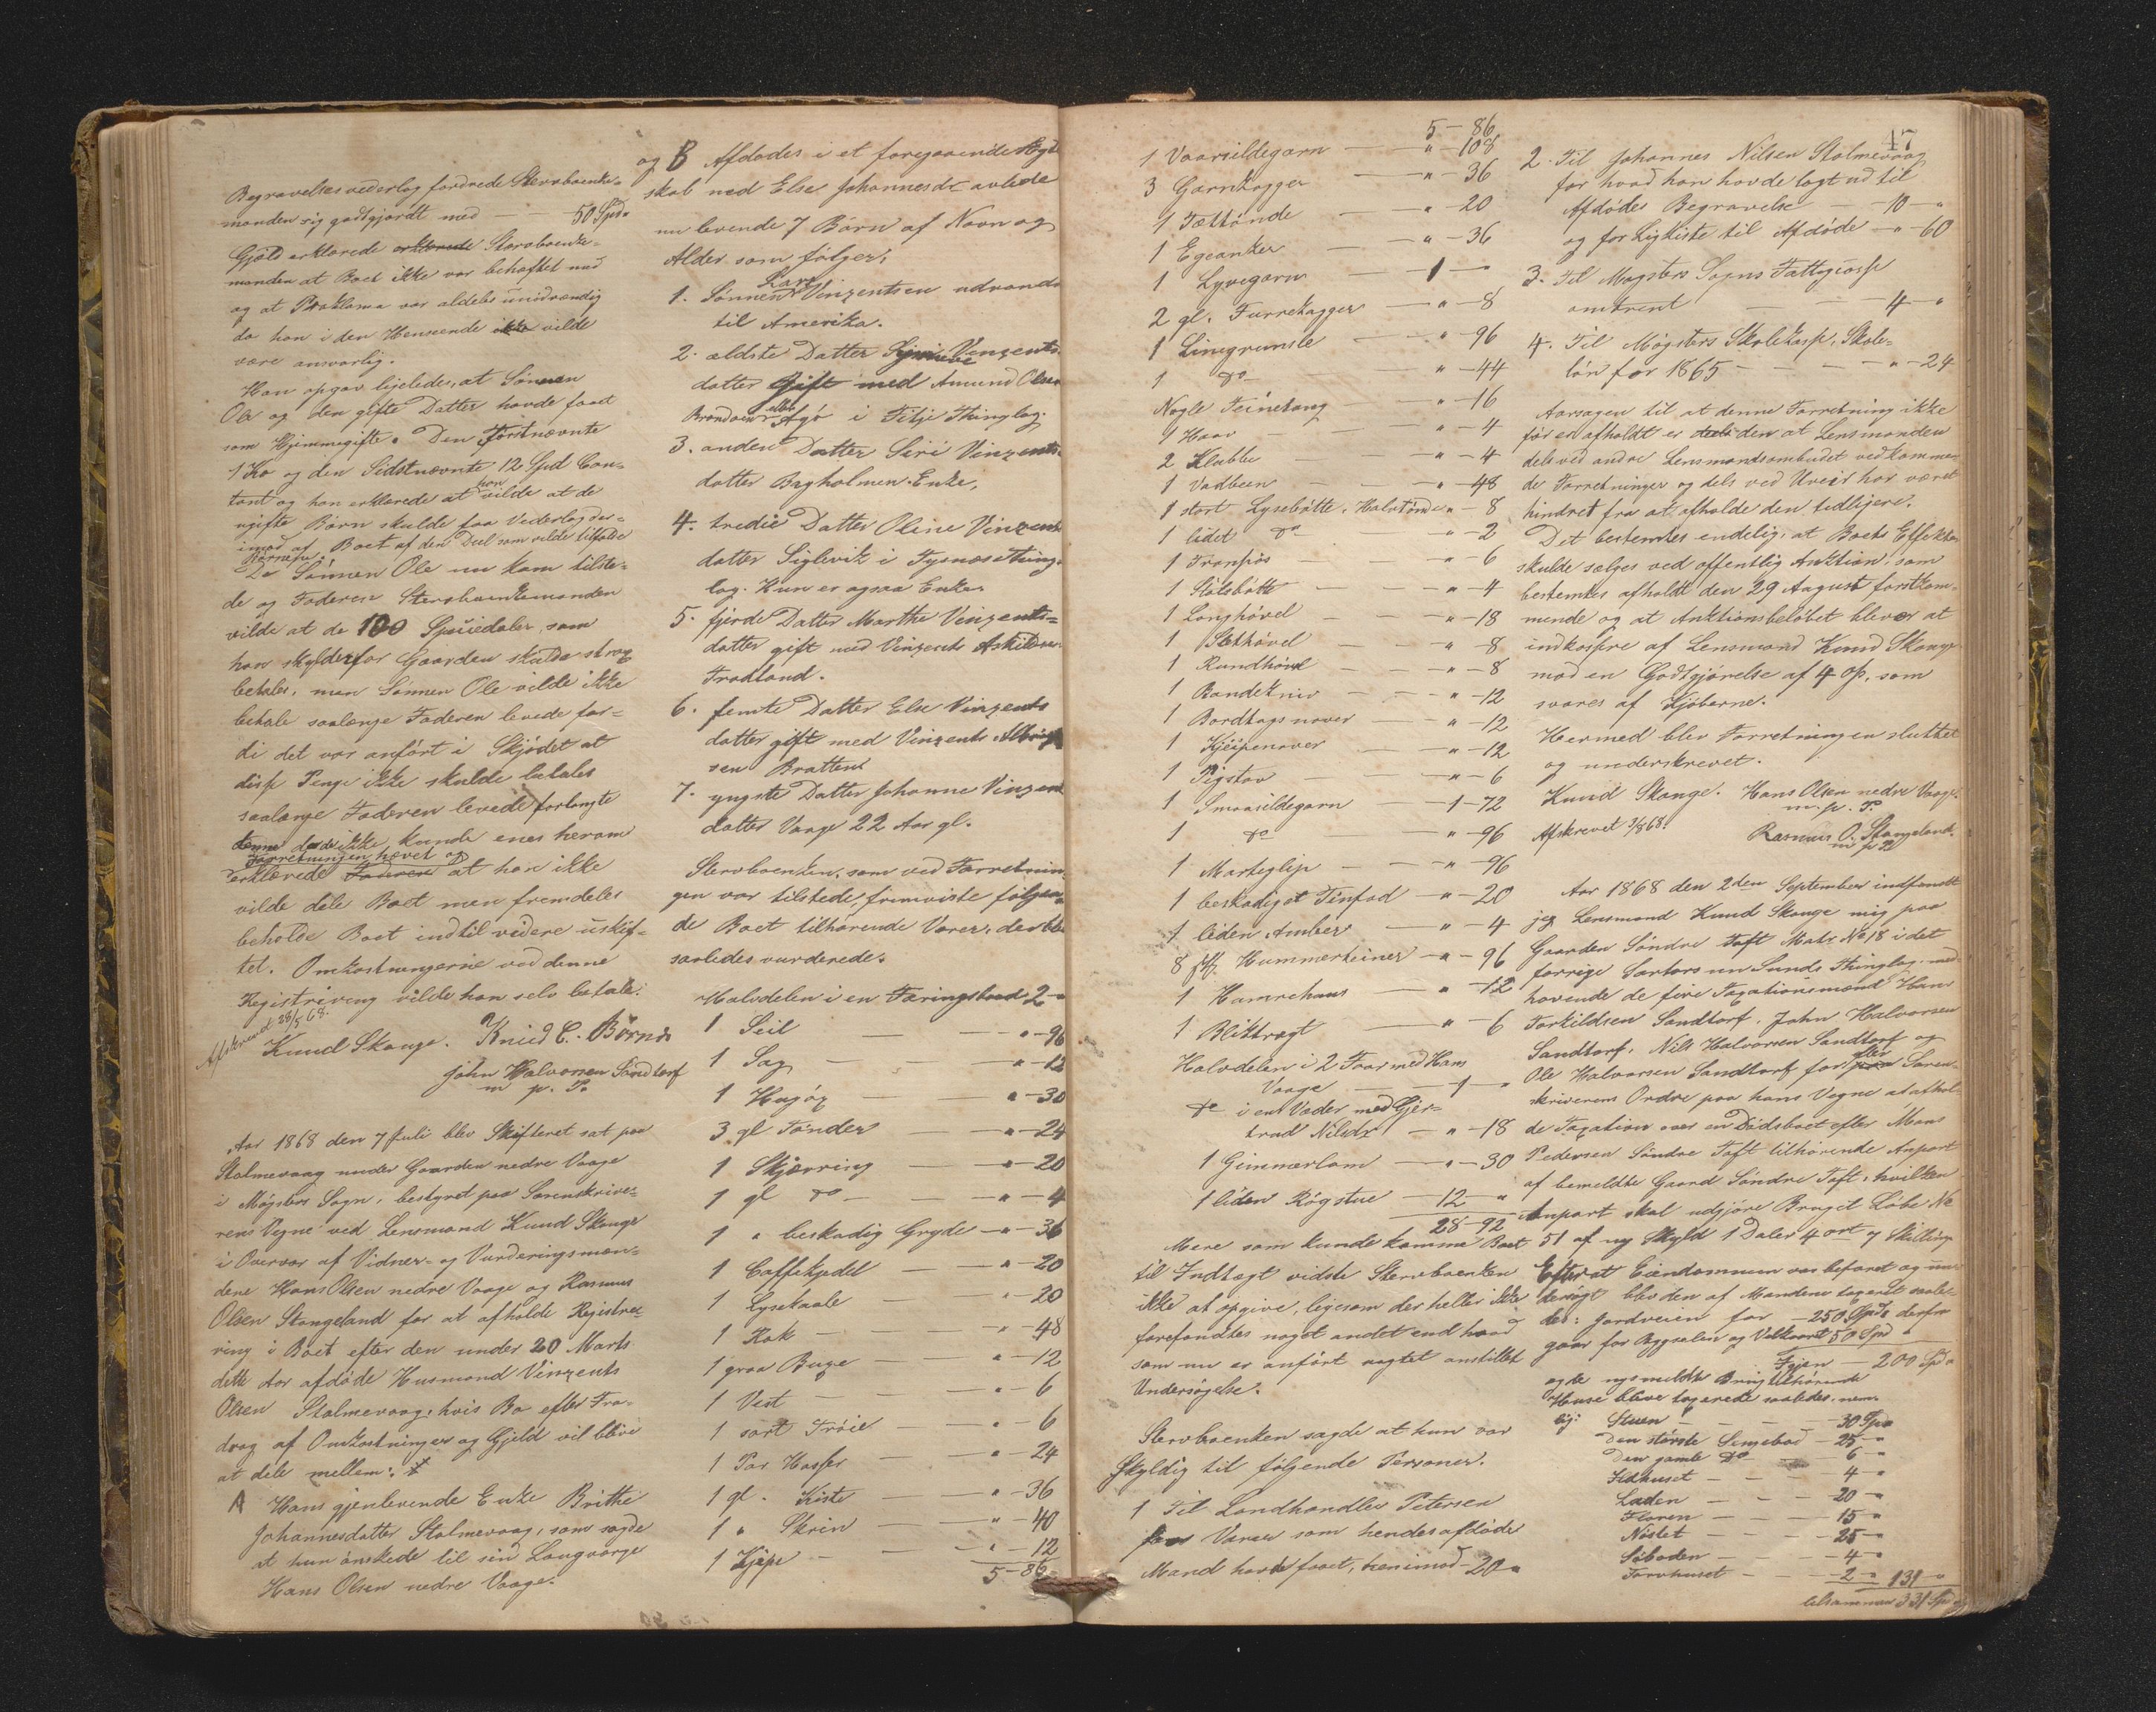 Begravelsesvederlag fordrede Stervboenke-
manden sig godtgjordt med — — 50 Spd.
Gjæld erklærede erklærede Stervboenke-
manden at Boet ikke var behæftet med
og at Proklama var aldeles unødvendig
da han i den Henseende ikke vilde
være ansvarlig.
Han opgav ligeledes, at Sønnen
Ole og den gifte Datter havde faaet
som Hjemmegifte. Den Førstnævnte
1 Ko og den Sidstnævnte 12 Spd Con-
tant og han erklærede at han vilde at de
ugifte Børn skulde faa Vederlag der-
imod af Boet af den Deel som vilde tilfalde
Børnene.
Da Sønnen Ole nu kom tilste-
de og Faderen Stervboenkemanden
vilde at de 100 Speciedaler, som
han skylder for Gaarden skulde strax
betales, men Sønnen Ole vilde ikke
betale saalænge Faderen levede for-
di det var anført i Skjødet at
disse Penge ikke skulde betales
saalænge Faderen levede forlangte
denne da de ikke kunde enes herom
Forretningen hævet og
erklærede Faderen at han ikke
vilde dele Boet men fremdeles
beholde Boet indtil videre uskif-
tet. Omkostningerne ved denne
Registrering vilde han selv betale.
Afskrevet 28/5 68.
Knud Skauge. Knud C. Børnes
John Halvorsen Sandtorf
m. p. P.
Aar 1868 den 7 Juli blev Skifteret sat paa
Stolmevaag under Gaarden nedre Vaage
i Møgsters Sogn, bestyret paa Sorenskrive-
rens Vegne ved Lensmand Knud Skauge
i Overvær af Vidner- og Vurderingsmæn-
dene Hans Olsen nedre Vaage og Rasmus
Olsen Stangeland for at afholde Registre-
ring i Boet efter den under 20 Marts
dette Aar afdøde Husmand Vinzents
Olsen Stolmevaag, hvis Bo efter Fra-
drag af Omkostninger og Gjeld vil blive
at dele mellem:
A Hans gjenlevende Enke Brithe
Johannesdatter Stolmevaag, som sagde
at hun ønskede til sin Laugværge
Hans Olsen nedre Vaage.
og B Afdødes i et foregaaende Ægte-
skab med Else Johannesdr avlede
nu levende 7 Børn af Navn og
Alder som følger:
1. Sønnen Vinzentsen udvandr
til Amerika.
2. ældste Datter Vinzents
datter Gift med Amund Olsen
eller Agø i Fitje Thinglag.
3. anden Datter Siri Vinzents
datter Bagholmen Enke,
4. tredie Datter Oline Vinzents
datter Siglevik i Tysnæs Thing-
lag. Hun er ogsaa Enke.
5. fjerde Datter Marthe Vinzents-
datter gift med Vinzents Askildsen
Frodland.
6. femte Datter Else Vinzents
datter gift med Vinzents
sen Bratten
7. yngste Datter Johanne Vinzents
datter Vaage 22 Aar gl.
Stervboenken, som ved Forretnin-
gen var tilstede, fremviste følgen-
de Boet tilhørende Varer, der ble
saaledes vurderede.
Halvdelen i en Færingsbaad 2 - "
1 Seil — " - 96
1 Sag — " - 12
1 Høgøx — " - 30
3 gl Tønder — " - 24
1 Skjærring — " - 20
1 gl do — " - 4
1 " beskadig Gryde — " - 36
1 Caffekjedel — " - 20
1 Lysekaale — " - 20
1 Rok — " - 48
1 graa Buxe — " - 12
1 Vest — " - 6
1 sort Trøie — " - 6
1 Par Hosser — " - 24
1 gl. Kiste — " - 36
1 " Skrin — " - 40
1 Kjipe — " - 12
5 - 86
47
5 - 86
1 Vaarsildegarn — " - 108
3 Garnkagger — " - 36
1 Fættønde — " - 20
1 Egeanker — " - 36
1 Lyregarn — 1 - "
2 gl. Furrekagger — " - 8
1 Linegrunsle — " - 96
1 do — " - 44
Nogle Teinetaug — " - 16
1 Haav — " - 4
2 Klubbe — " - 4
1 Vadbeen — " - 48
1 stort Lysebøtte, Halvtønde " - 8
1 lidet do — " - 2
1 Tranføs — " - 6
1 Stølsbøtte — " - 4
1 Langhøvel — " - 18
1 Sletthøvel — " - 8
1 Rundhøvel — " - 8
1 Baandekniv — " - 12
1 Bordtagsnaver — " - 12
1 Kjeipenaver — " - 12
1 Pigstav — " - 6
1 Smaasildegarn — 1 - 72
1 do — " - 96
1 Morteglip — " - 96
1 beskadiget Tinfad — " - 20
1 liden Amber — " - 4
8 Stk. Hummerteiner — " - 96
1 Hamrehaus — " - 12
1 Bliktragt — " - 6
Halvdelen i 2 Faar med Hans
Vaage — 1 "
do i en Væder med Gjer-
trud Nilsdr — " - 18
1 Gimmerlam — " - 30
1 liden Røgstue — 12 - "
28 - 92
Mere som kunde komme Boet
til Indtægt vidste Stervboenken
ikke at opgive, ligesom der heller ikke
forefandtes noget andet end hvad
som nu er anført uagtet anstillet
Undersøgelse.
Stervboenken sagde at hun var
Skyldig til følgende Personer.
1 Til Landhandler Petersen
for Varer som hendes afdøde
Mand havde faaet, henimod - 20 "
2. Til Johannes Nilsen Stolmevaag
for hvad han havde lagt ud til
Afdødes Begravelse — 10 - "
og for Ligkiste til Afdøde — " - 60
3. Til Møgsters Sogns Fattigcasse
omtrent — 4 - "
4. Til Møgsters Skolekasse, Skole-
løn for 1865 — " - 24
Aarsagen til at denne Forretning ikke
før er afholdt er den at Lensmanden
dels ved andre Lensmandsombudet vedkommen-
de Forretninger og dels ved Uveir har været
hindret fra at afholde den tidligere.
Det bestemtes endelig, at Boets Effekter
skulde sælges ved offentlig Auktion, som
bestemtes afholdt den 29 August førstkom-
mende og at Auktionsbeløbet blever at
indkassere af Lensmand Knud Skauge
mod en Godtgjørelse af 4 %, som
svares af Kjøberne.
Hermed blev Forretningen sluttet
og underskrevet.
Knud Skauge. Hans Olsen nedre Vaage.
m. p. P.
Afskrevet 3/8 68. Rasmus O. Stangeland.
m p P
Aar 1868 den 2den September indfandt
jeg Lensmand Knud Skauge mig paa
Gaarden Søndre Toft Matr. No 18 i det
forrige Sartors nu Sunds Thinglag, med-
havende de fire Taxationsmænd Hans
Torkildsen Sandtorf, John Halvorsen
Sandtorf, Nils Halvorsen Sandtorf og
Ole Halvorsen Sandtorf for efter Soren-
skriverens Ordre paa hans Vegne at afhol-
de Taxation over en Dødsboet efter Mons
Pedersen Søndre Toft tilhørende Anpart
af bemeldte Gaard Søndre Toft, hvilken
Anpart skal udgjøre Bruget Løbe No
51 af ny Skyld 1 Daler 4 ort 7 Skilling
Efterat Eiendommen var befaret og un-
dersøgt blev den af Mændene taxeret saale-
des: Jordveien for — 250 Spd, derfra
gaar for Bygsalen og 50 Spd "
Igjen — 200 Spd "
og de nysmeldte Brug tilhørende
Huse bleve taxerede saaledes, nem-
lig: Stuen — 30 Spd
Den største Sengebod — 25 "
Den gamle do — 6 "
Ildhuset — 4 "
Laden — 20 "
Floren — 15 "
Nøstet — 25 "
Søboden — 4 "
Torvhuset — 2 " 131 "
tilsammen 331 Spd